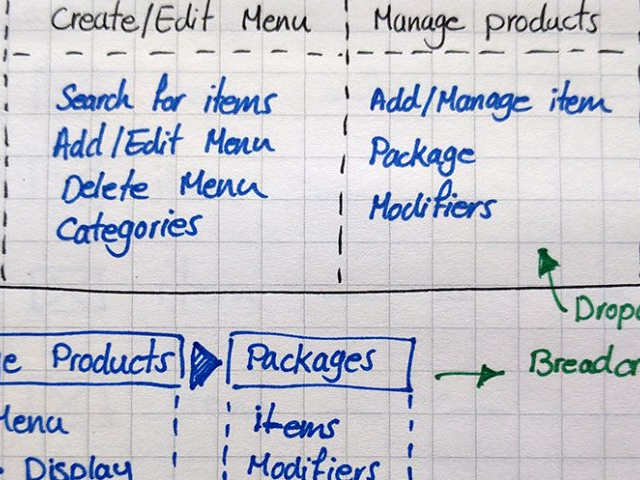 Create/Edit Menu
Search for items
Add/Edit Menu
Delete Menu
Categories
Manage products
Add/Manage item
Package
Modifiers
Products
Packages
Menu
items
Display
Modifiers